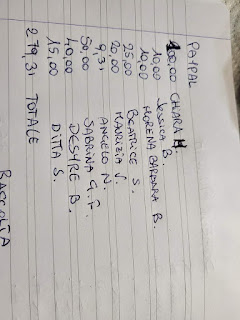 PAYPAL
100,00 CHIARA
10,00 JESSICA B.
10,00 MORENA BARBARA B.
25,00 BEATRICE S.
20,00 MAURIZIA V.
9,31 ANGELO N.
50,00 SABRINA G.F.
40,00 DESYRE B.
15,00 DITTA S.
279,31 TOTALE
RACCOLTA